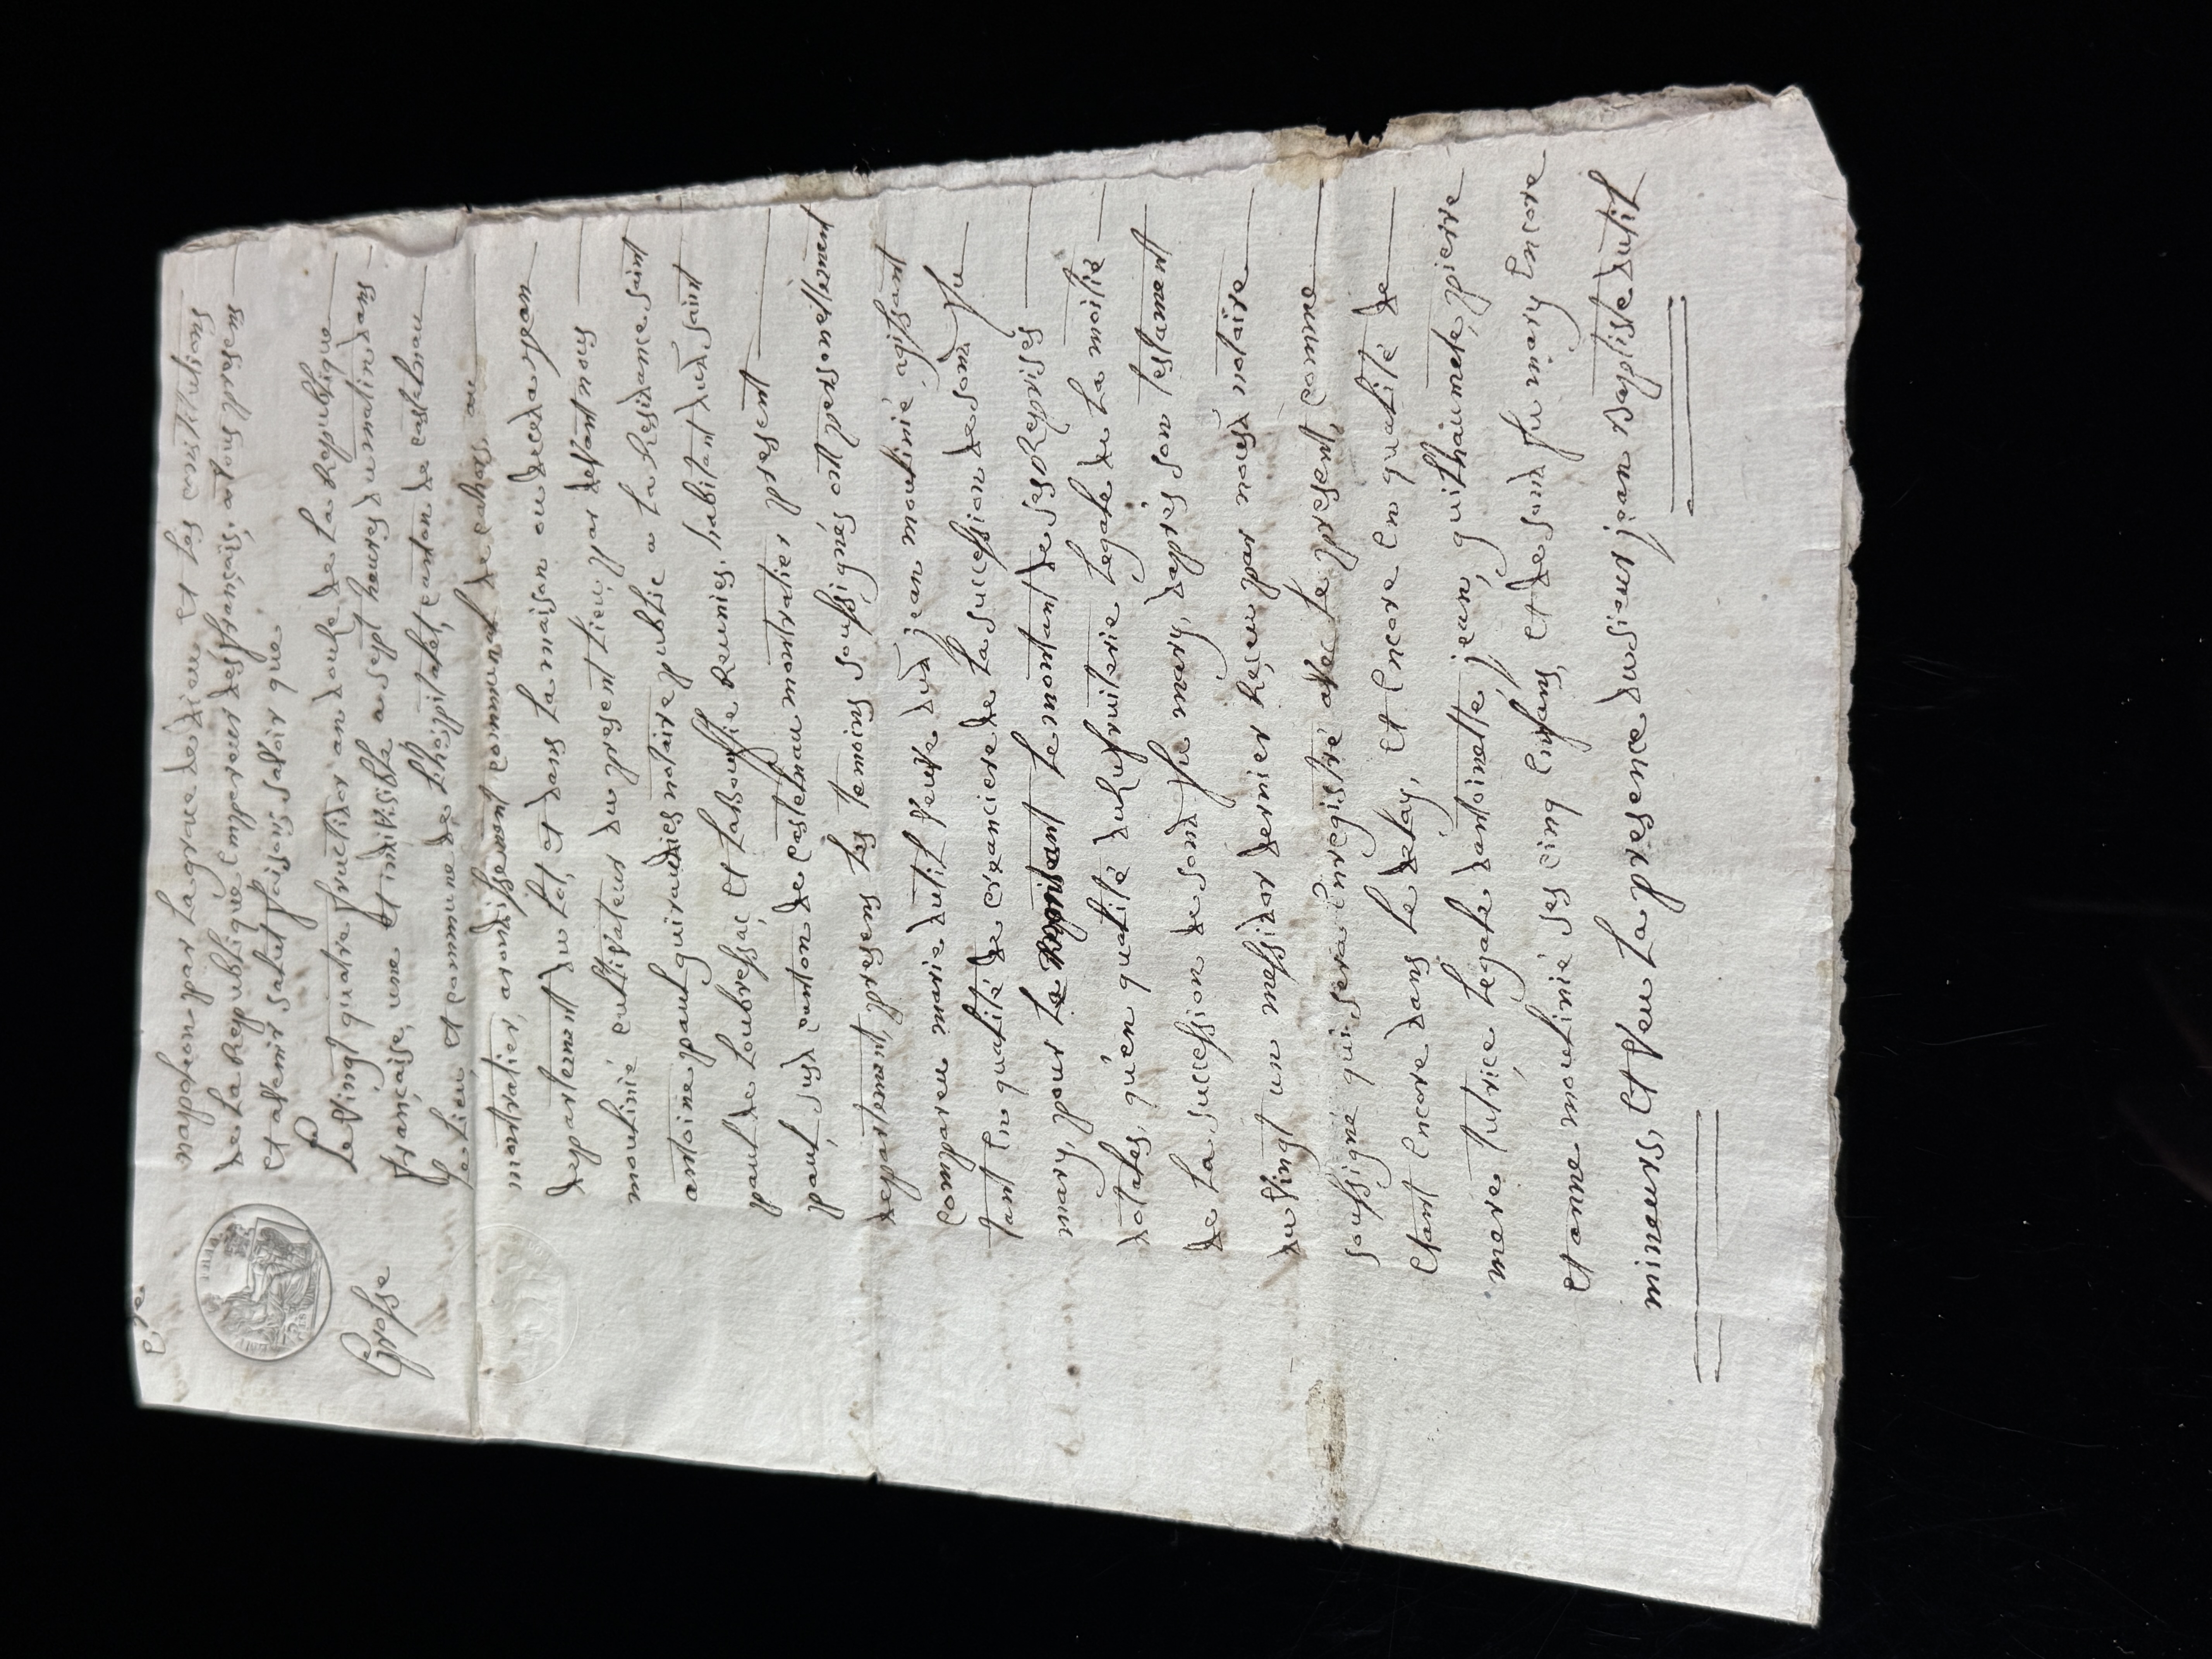 napoleon par la grace de dieu et les constitutions
de la Republique Empereur des français, a tous presens
et avenir salut faisons savoir que
Grosse
Le vingt quatre fructidor an douze de la Republique
française, une et indivisible a sept heures du matin dans
le lieu et commune de lhospitalet, canton de castelnau
montratier, arondissemant communal de cahors au
departement du lot, et dans la maison ou deceda jean
moulinié cultivateur du present lieu, par devant nous
antoine paul guiraudies notaire public a la Residance saint
paul de loubressac, et labouffie Reunies. habitant dud. saint
paul, susd canton de castelnau montratier present
departement, presens les temoins soussignés ont personnellement
comparu marie dutil veuve dud jean moulinié, agissant
tant en qualité de creanciere de la succession de sond fu
mary, pour le montant de ses reprises
dotales, qu'en qualité dusufruiterie legale de la moitié
de la succession de sond fu mary, daprés son testament
du vingt un messidor dernier Reçeu par nousd notaire
soussigné qui sera enregistré avec le present, comme
Etant Encore dans le delay, et Encore En qualité de
mere tutrice legale dantoinette, jean, guilhaumete, pierre
et anne moulinié ses cinq Enfans, et de sond fu mary Encore
mineurs, Et veu la presence du sieur jean Baptiste dutil